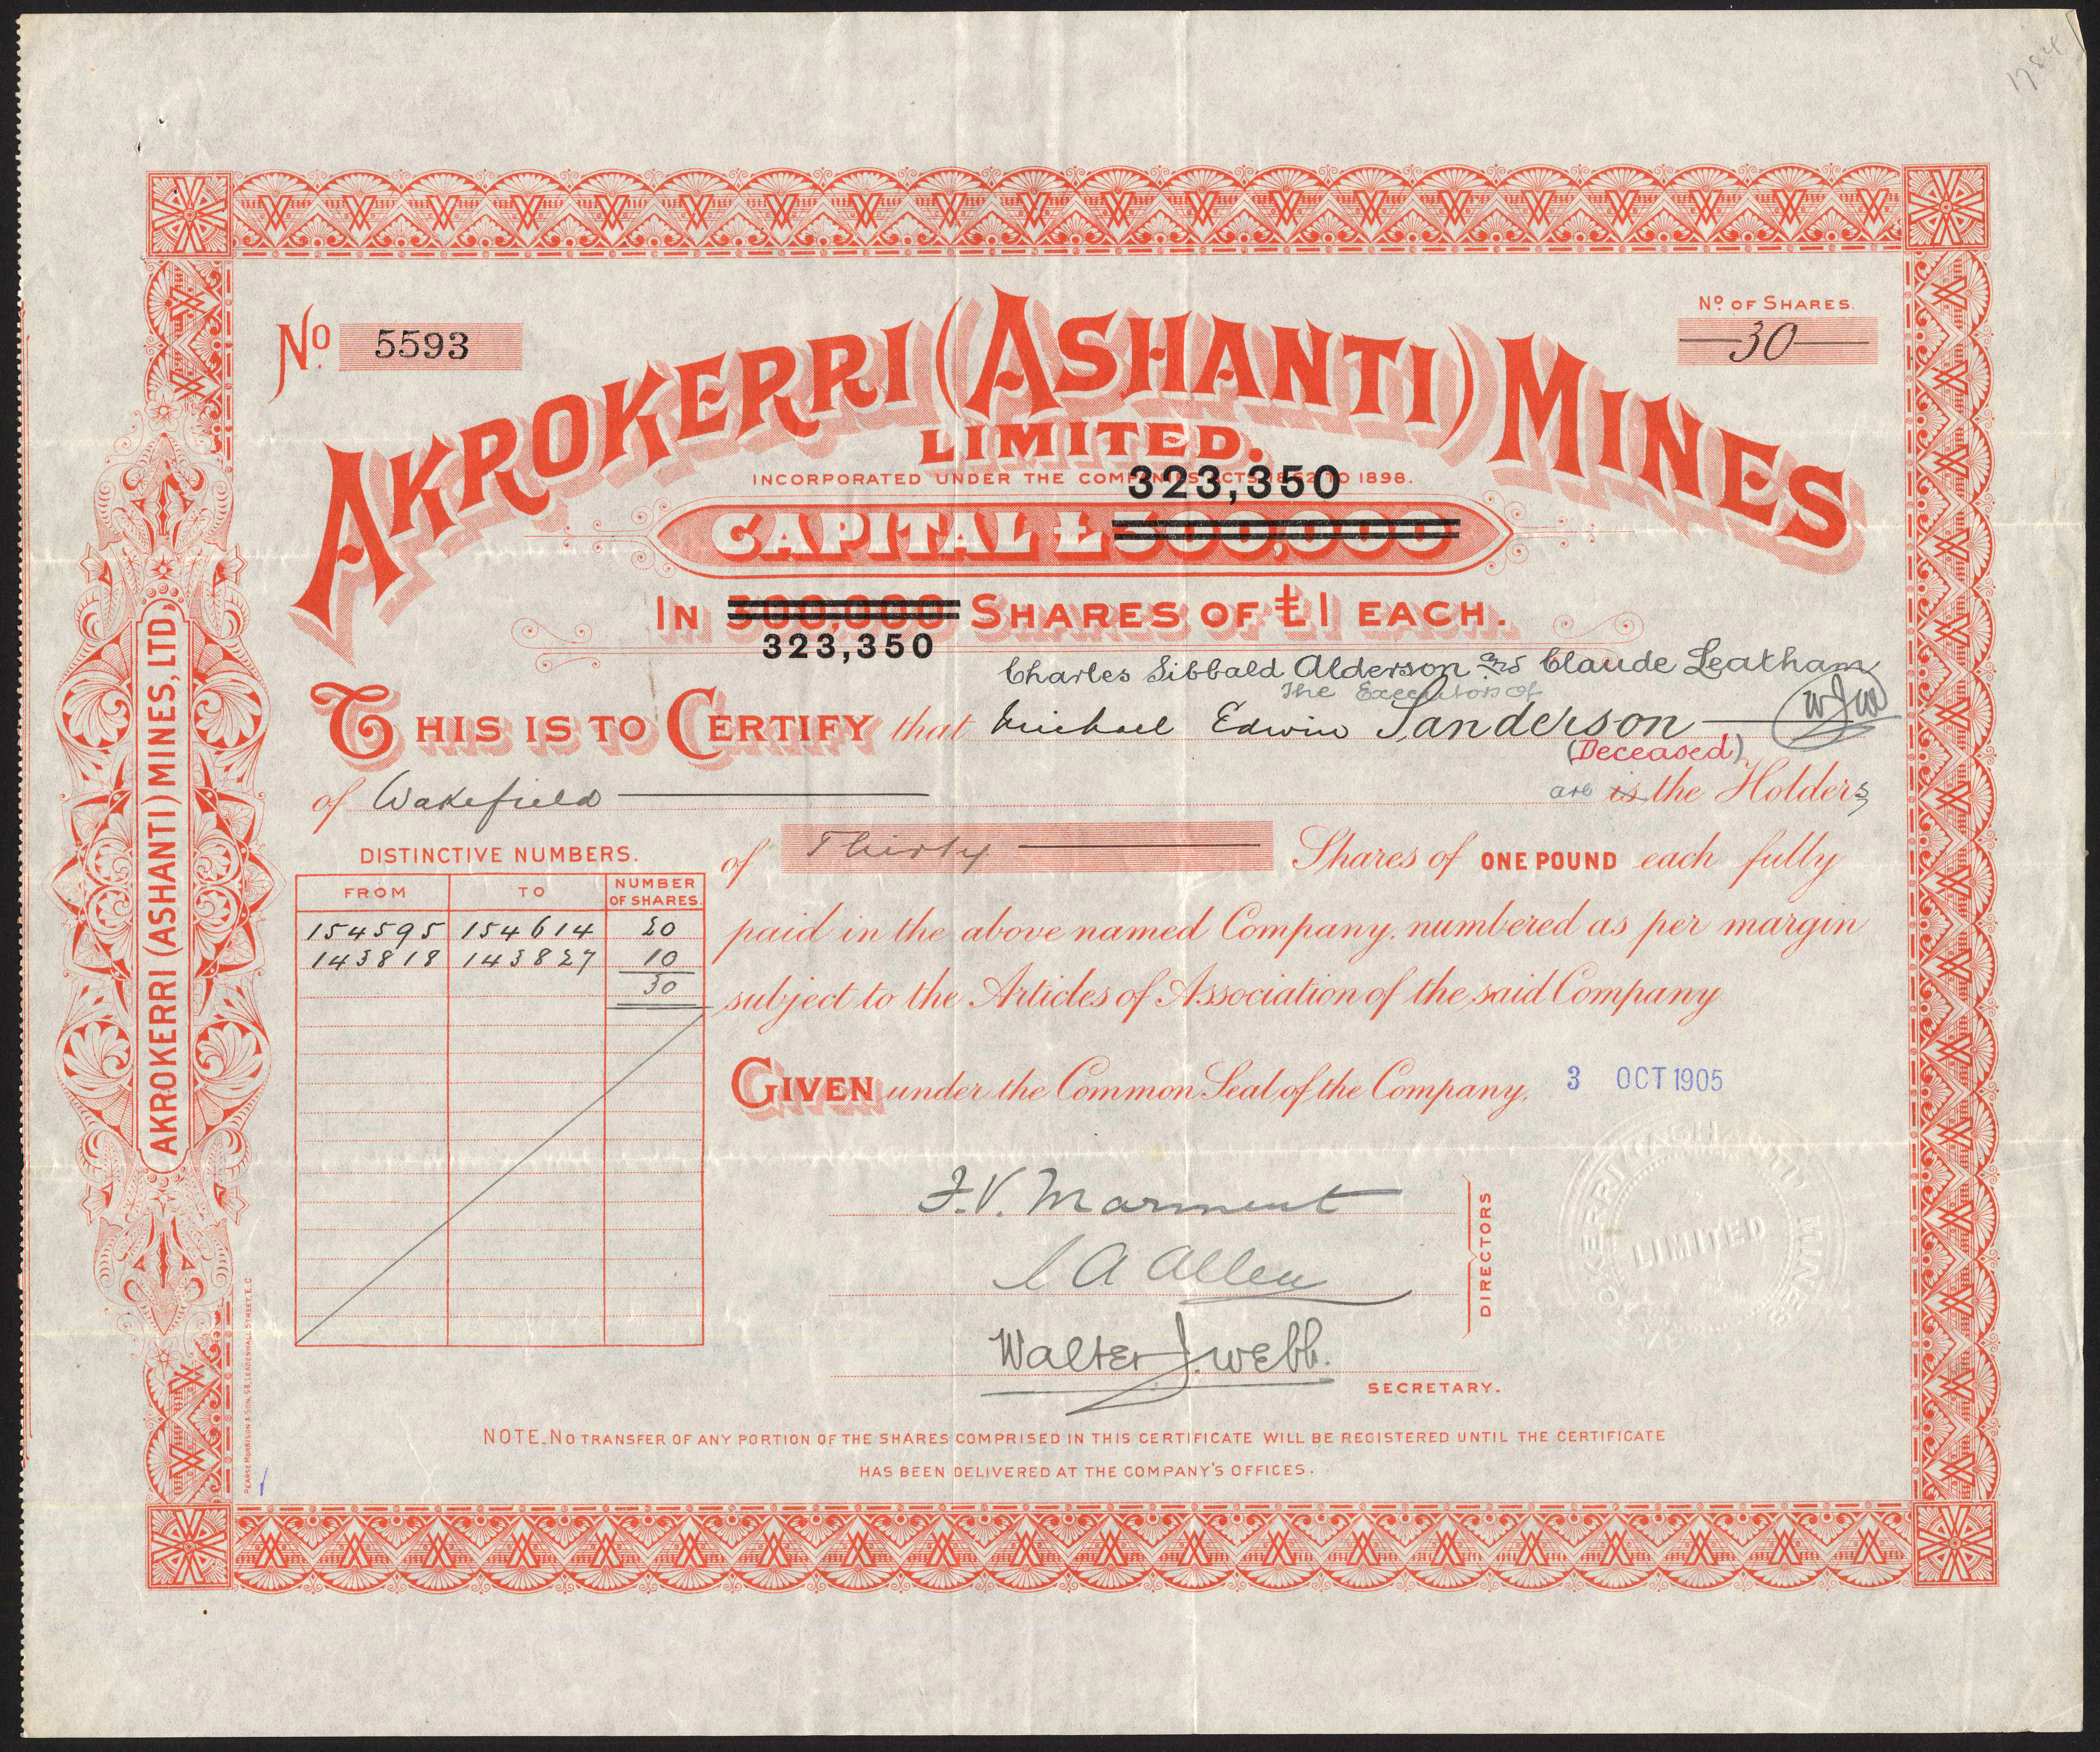 1784
Nº 5593
Nº OF SHARES.
30
AKROKERRI (ASHANTI) MINES
LIMITED.
INCORPORATED UNDER THE COMPANIES ACTS 1862 TO 1898.
323,350
CAPITAL £300,000
IN 300,000 SHARES OF £1 EACH.
323,350
Charles Sibbald Alderson and Claude Leatham
The Executors of
THIS IS TO CERTIFY that Michael Edwin Sanderson WJW
(Deceased)
of Wakefield are is the Holders
of Thirty Shares of ONE POUND each fully
paid in the above named Company, numbered as per margin
subject to the Articles of Association of the said Company
DISTINCTIVE NUMBERS.
FROM TO NUMBER OF SHARES.
154595 154614 20
143818 143827 10
30
GIVEN under the Common Seal of the Company. 3 OCT 1905
F.V. Marment
L A Allen
DIRECTORS
Walter J. Webb.
SECRETARY.
AKROKERRI ASHANTI MINES
LIMITED
NOTE_NO TRANSFER OF ANY PORTION OF THE SHARES COMPRISED IN THIS CERTIFICATE WILL BE REGISTERED UNTIL THE CERTIFICATE
HAS BEEN DELIVERED AT THE COMPANY'S OFFICES.
AKROKERRI (ASHANTI) MINES, LTD.
PEARSE MORRISON & SON, 58, LEADENHALL STREET, E.C